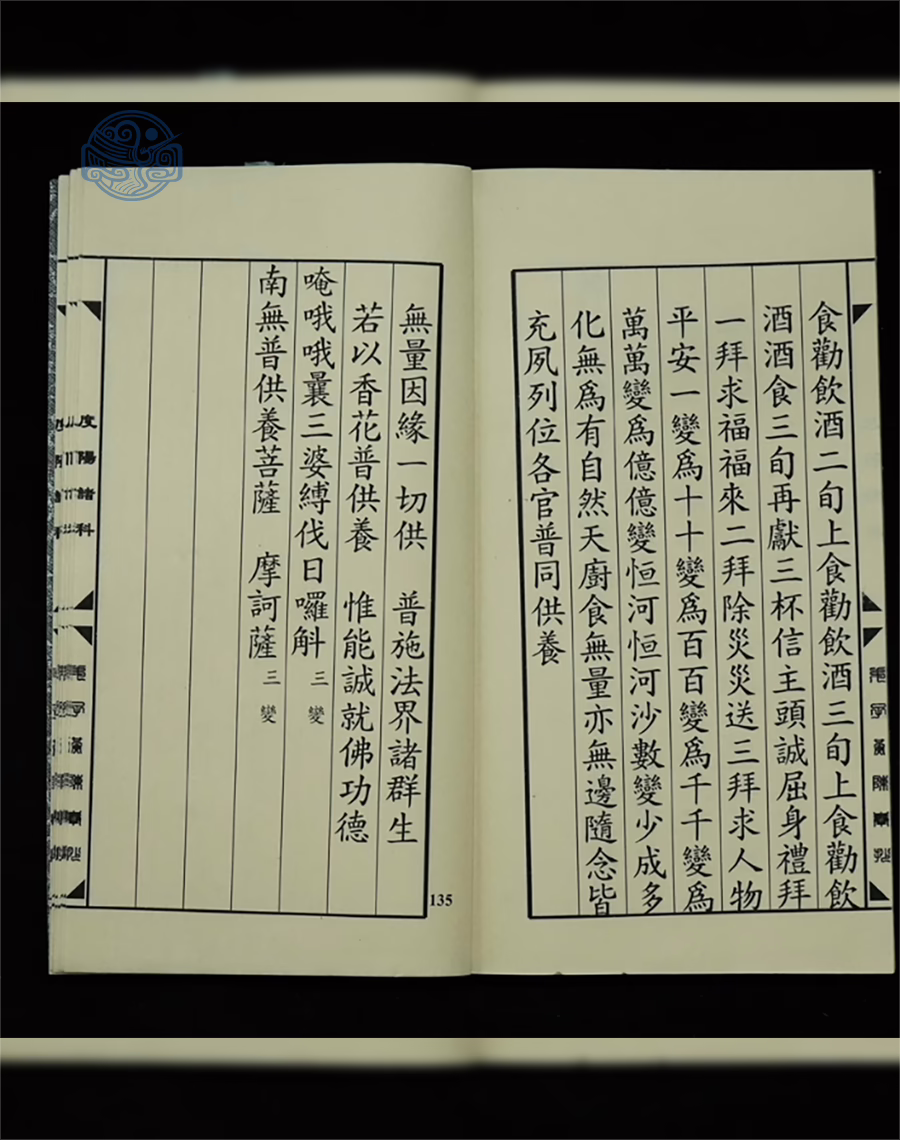 食勸飲酒二旬上食勸飲酒三旬上食勸飲
酒酒食三旬再獻三杯信主頭誠屈身禮拜
一拜求福福來二拜除災災送三拜求人物
平安一變爲十十變爲百百變爲千千變爲
萬萬變爲億億變恒河恒河沙數變少成多
化無爲有自然天廚食無量亦無邊隨念皆
充夙列位各官普同供養
無量因緣一切供 普施法界諸群生
若以香花普供養 惟能誠就佛功德
唵哦哦曩三婆縛伐日囉斛 三變
南無普供養菩薩 摩訶薩 三變
度陽諸科
135